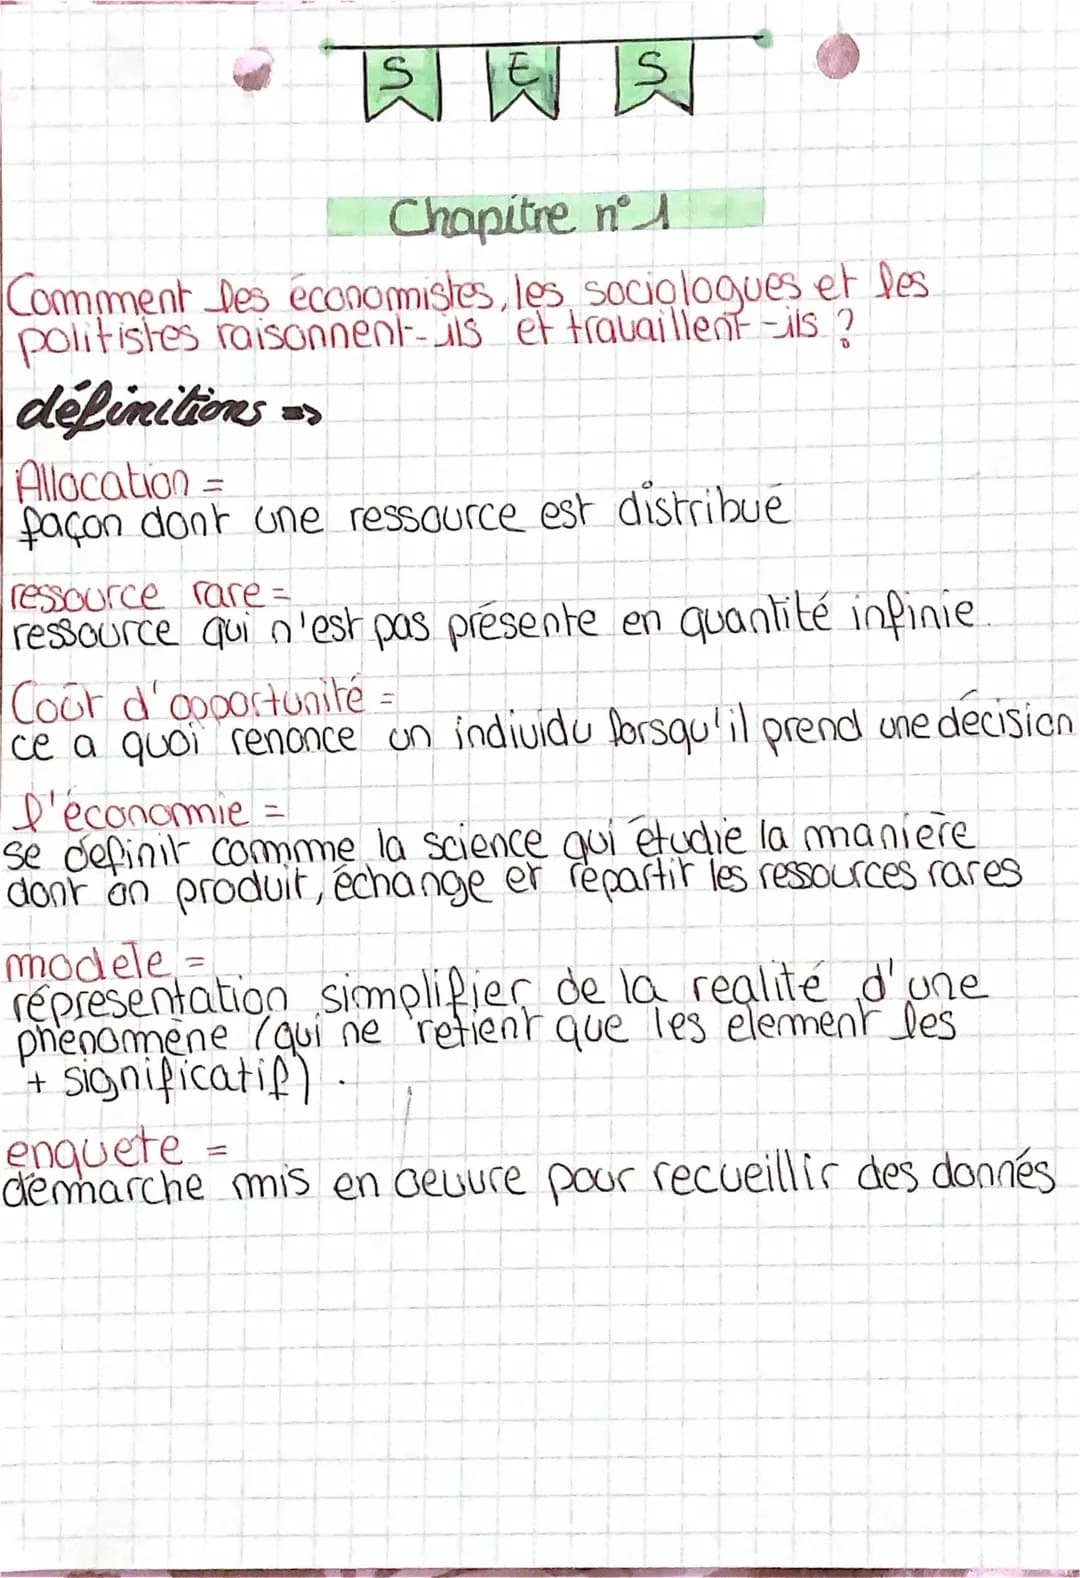 S E S
Chapitre n°1
Comment les économistes, les sociologues et les
politistes raisonnent-ils et travaillent-ils ?
définitions =>
Allocation =
façon dont une ressource est distribué
ressource rare =
ressource qui n'est pas présente en quantité infinie.
Coût d'opportunité =
ce a quoi renonce un individu lorsqu'il prend une décision
l'économie =
se définit comme la science qui étudie la manière
dont on produit, échange et répartir les ressources rares
modele =
réprésentation simplifier de la realité d'une
phénomène (qui ne retient que les élément les
+ significatif).
enquete =
démarche mis en oeuvre pour recueillir des donnés